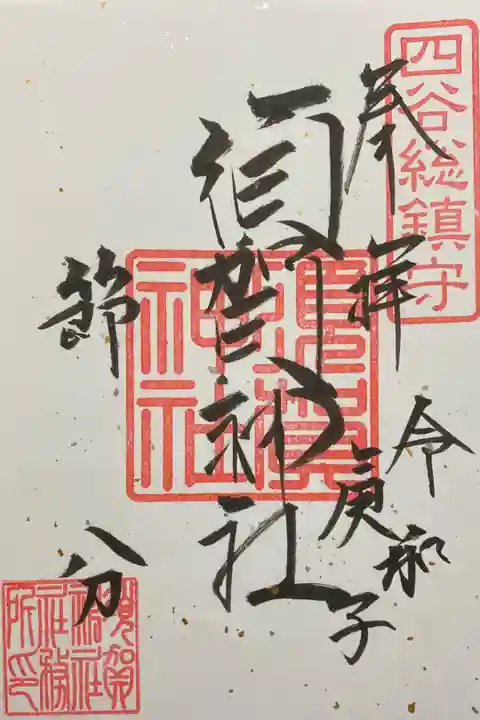 四谷総鎮守
奉拝
令和
庚子
須賀神社
須賀
神社
節分
須賀
神社
社務
所印